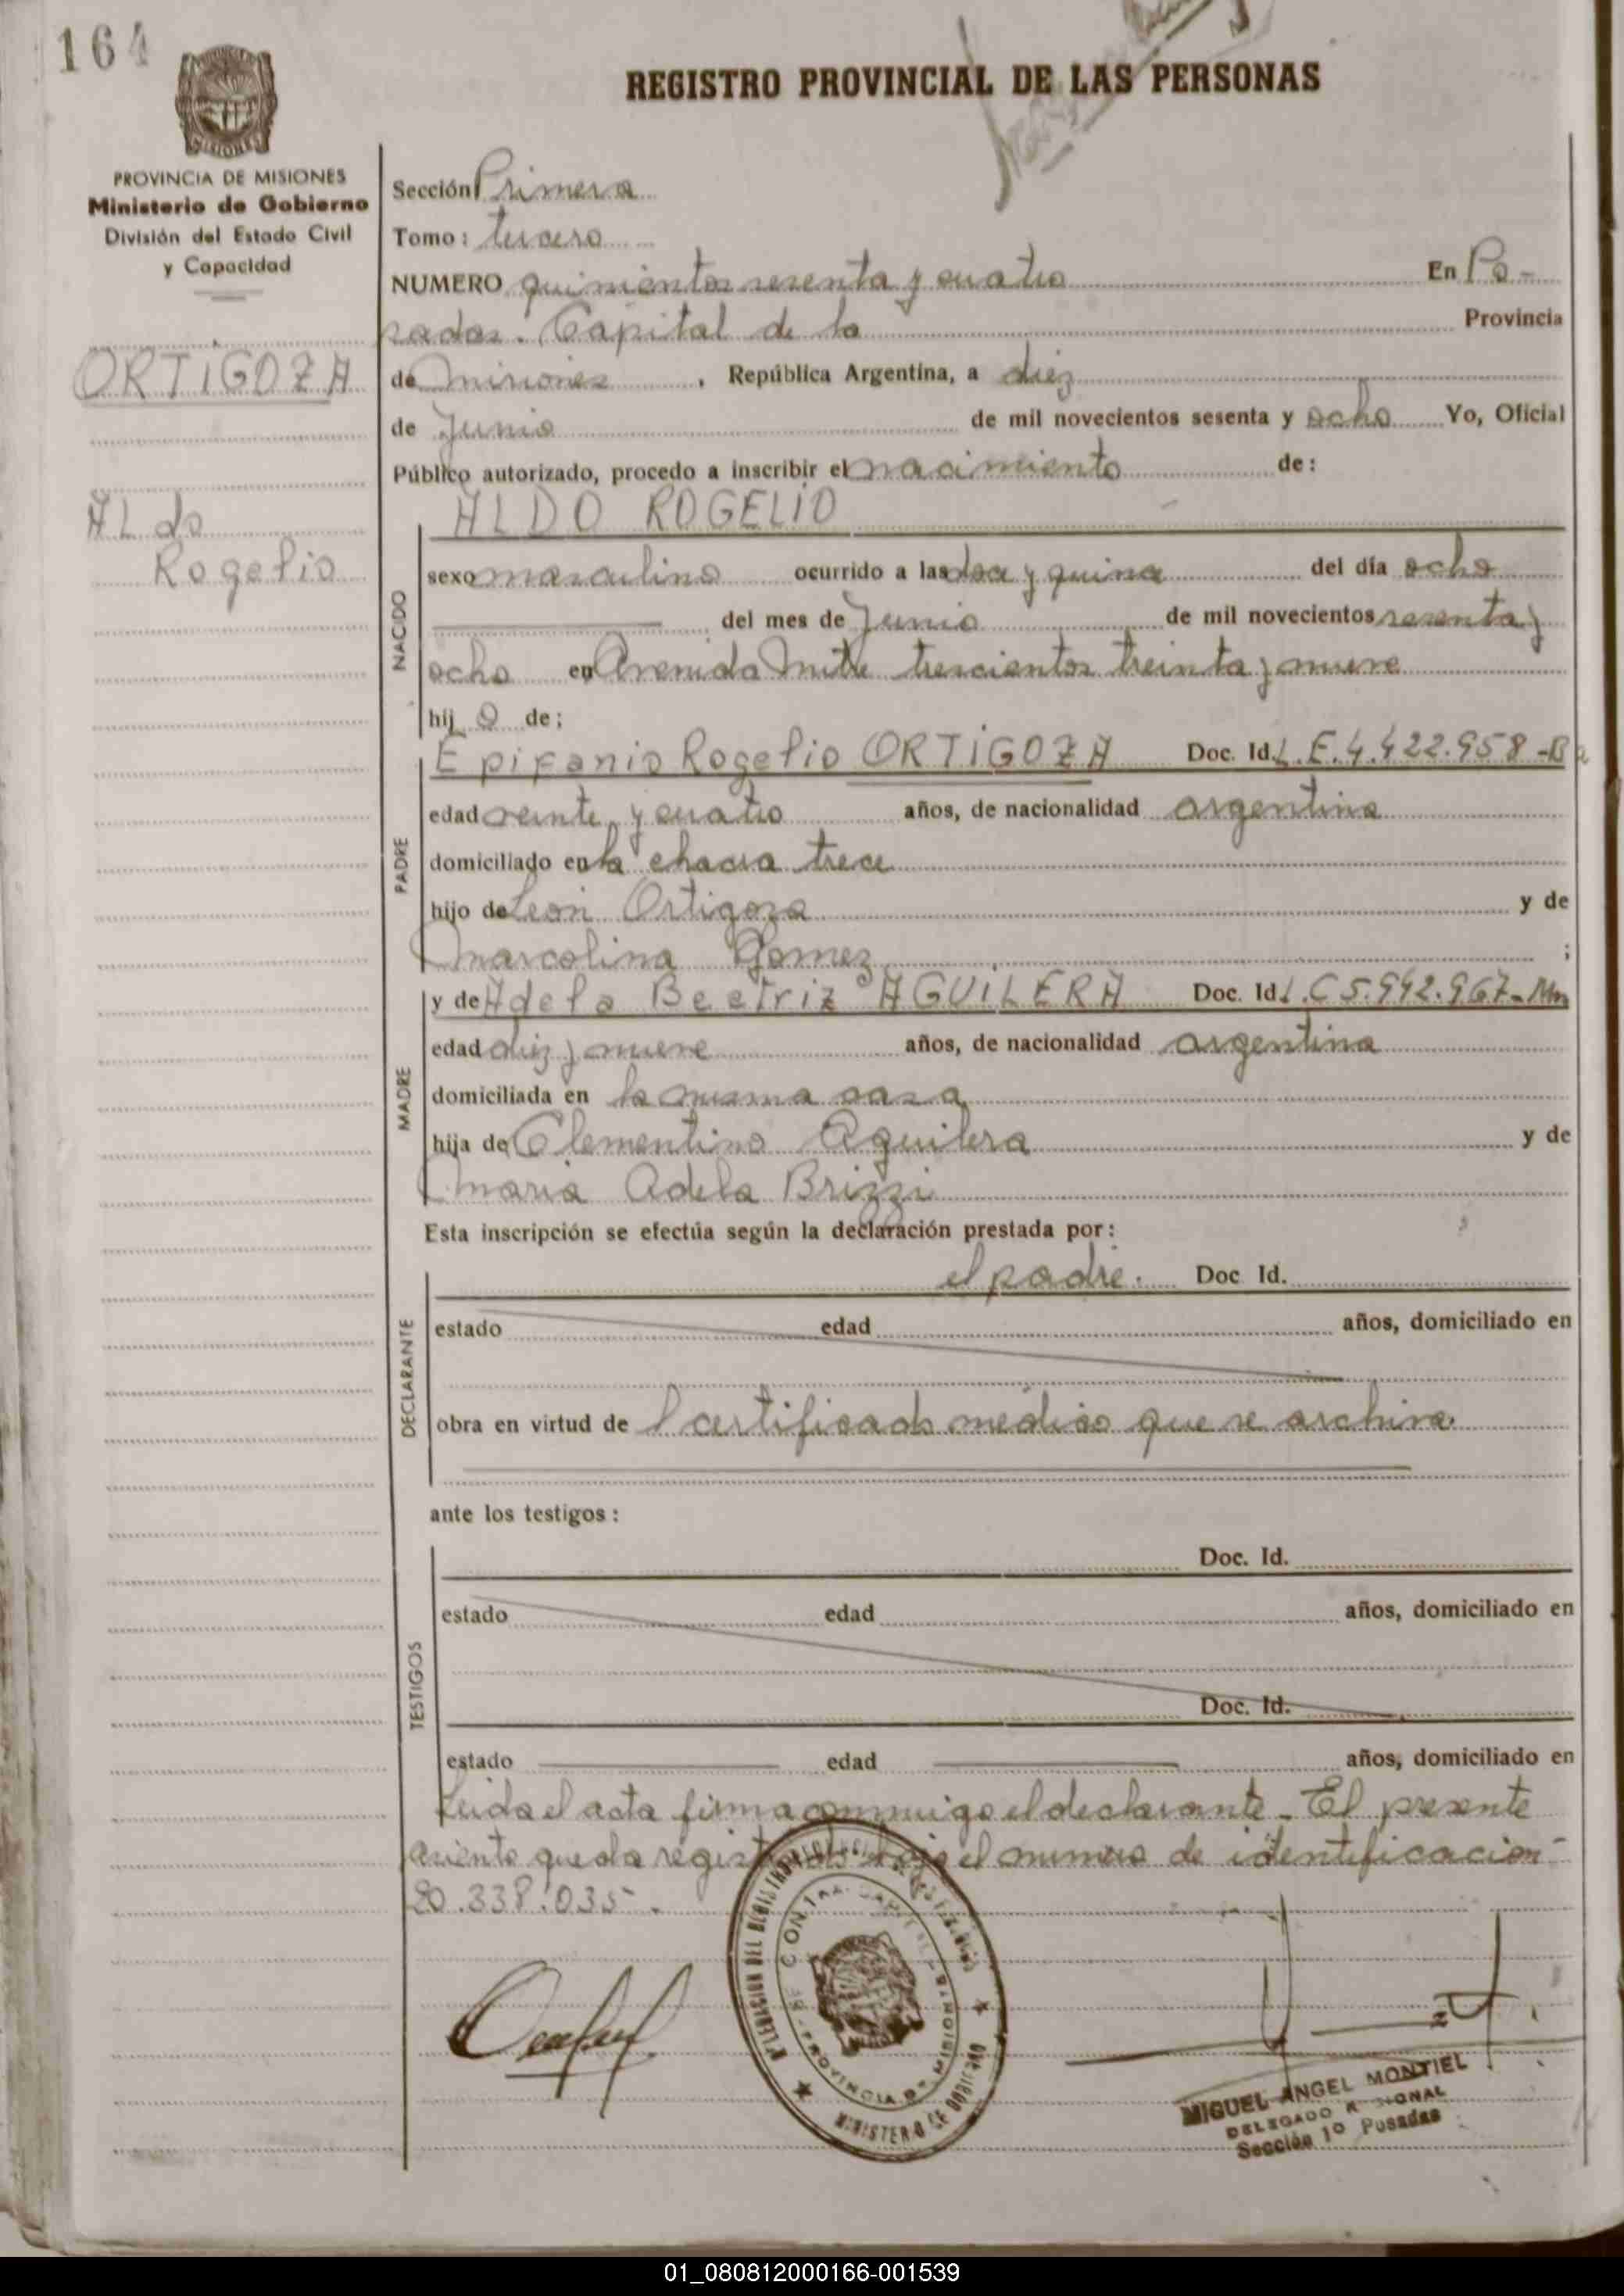 164
REGISTRO PROVINCIAL DE LAS PERSONAS
PROVINCIA DE MISIONES
Ministerio de Gobierno
División del Estado Civil
y Capacidad
ORTIGOZA
ALdo
Rogelio
Sección Primera
Tomo: tercero
NUMERO quinientos sesenta y cuatro En Po-
sadas. Capital de la Provincia
de Misiones, República Argentina, a diez
de Junio de mil novecientos sesenta y ocho Yo, Oficial
Público autorizado, procedo a inscribir el nacimiento de:
NACIDO
ALDO ROGELIO
sexo masculino ocurrido a las doce y quince del día ocho
del mes de Junio de mil novecientos sesenta y
ocho en Avenida Mitre trescientos treinta y nueve
hijo de:
PADRE
Epifanio Rogelio ORTIGOZA Doc. Id. L.E. 4.422.958-B
edad veinte y cuatro años, de nacionalidad argentina
domiciliado en la chacra trece
hijo de Leon Ortigoza y de
Marcolina Gomez ;
MADRE
y de Adela Beatriz AGUILERA Doc. Id. L.C 5.942.967-Mn
edad diez y nueve años, de nacionalidad argentina
domiciliada en la misma casa
hija de Clementino Aguilera y de
Maria Adela Brizzi
Esta inscripción se efectúa según la declaración prestada por:
DECLARANTE
el padre. Doc Id.
estado edad años, domiciliado en
obra en virtud de l certificado medico que se archiva
ante los testigos:
TESTIGOS
Doc. Id.
estado edad años, domiciliado en
Doc. Id.
estado edad años, domiciliado en
Leida el acta firma conmigo el declarante. El presente
asiento queda registrado bajo el numero de identificacion
20.338.035.
PROVINCIA DE MISIONES
MINISTERIO DE GOBIERNO
MIGUEL ANGEL MONTIEL
DELEGADO REGIONAL
Sección 1º Posadas
01_080812000166-001539